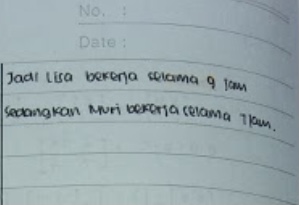 No. :
Date :
Jadi Lisa bekerja selama 9 jam
Sedangkan Muri bekerja selama 7 jam.